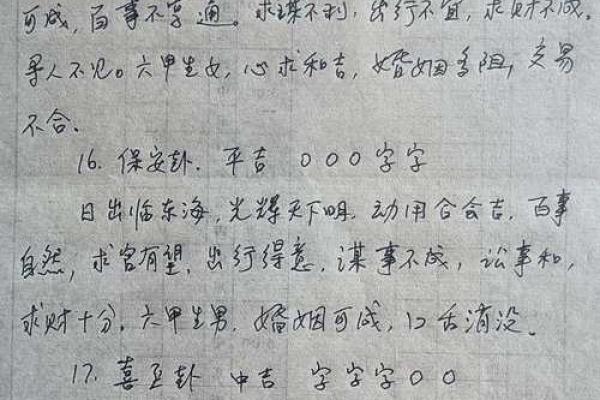 可成，百事不亨通。求谋不利，出行不宜，求财不成，
寻人不见。六甲生女，心求和吉，婚姻多阻，交易
不合。
16. 保安卦. 平吉 〇〇〇字字
日出临东海，光耀天下明，动用合会吉，百事
自然，求官有望，出行得意，谋事不成，讼事和，
求财十分，六甲生男，婚姻可成，口舌消没。
17. 喜至卦 中吉 字字字〇〇